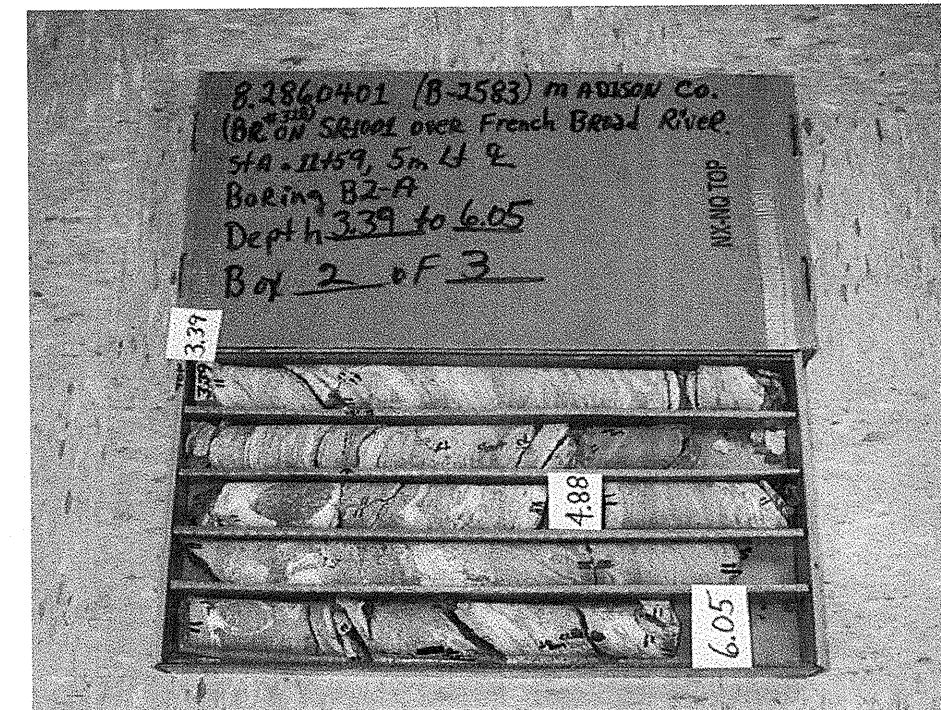 8.2860401 (B-2583) MADISON Co.
(BR #318 ON SR1001 over French Broad River.
StA. 11+59, 5m Lt ⅊
Boring B2-A
Depth 3.39 to 6.05
Box 2 oF 3
NX-NQ TOP
3.39
3.39
4.88
6.05